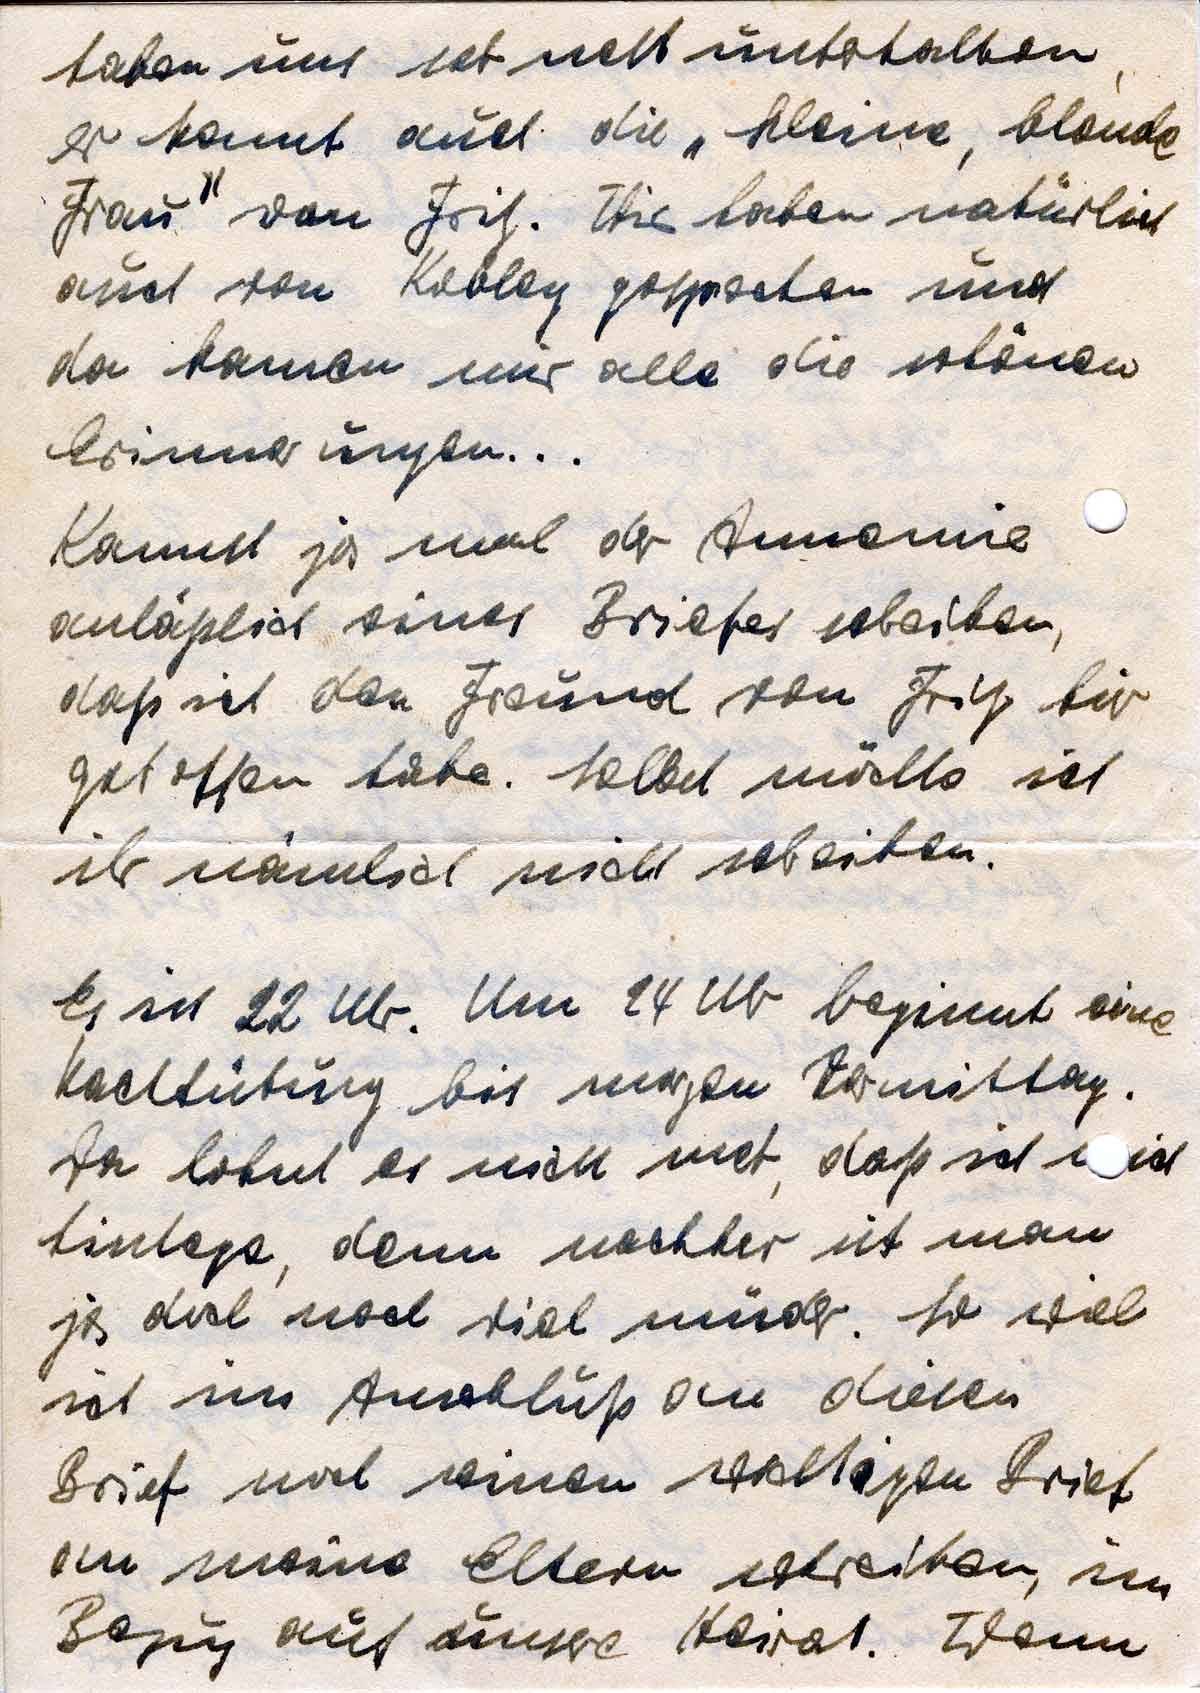 haben uns sehr nett unterhalten,
er kennt auch die „kleine, blonde
Frau" von Fritz. Wir haben natürlich
auch von Koblenz gesprochen und
da kamen mir alle die schönen
Erinnerungen...
Kannst ja mal der Annemie
anläßlich eines Briefes schreiben,
daß ich den Freund von Fritz hier
getroffen habe. Selbst möchte ich
ihr nämlich nicht schreiben.
Es ist 22 Uhr. Um 24 Uhr beginnt eine
Nachtübung bis morgen Vormittag.
Da lohnt es nicht mehr, daß ich mich
hinlege, denn nachher ist man
ja doch noch viel müder. So will
ich im Anschluß an diesen
Brief noch einen wichtigen Brief
an meine Eltern schreiben, im
Bezug auf unsere Heirat. Wenn